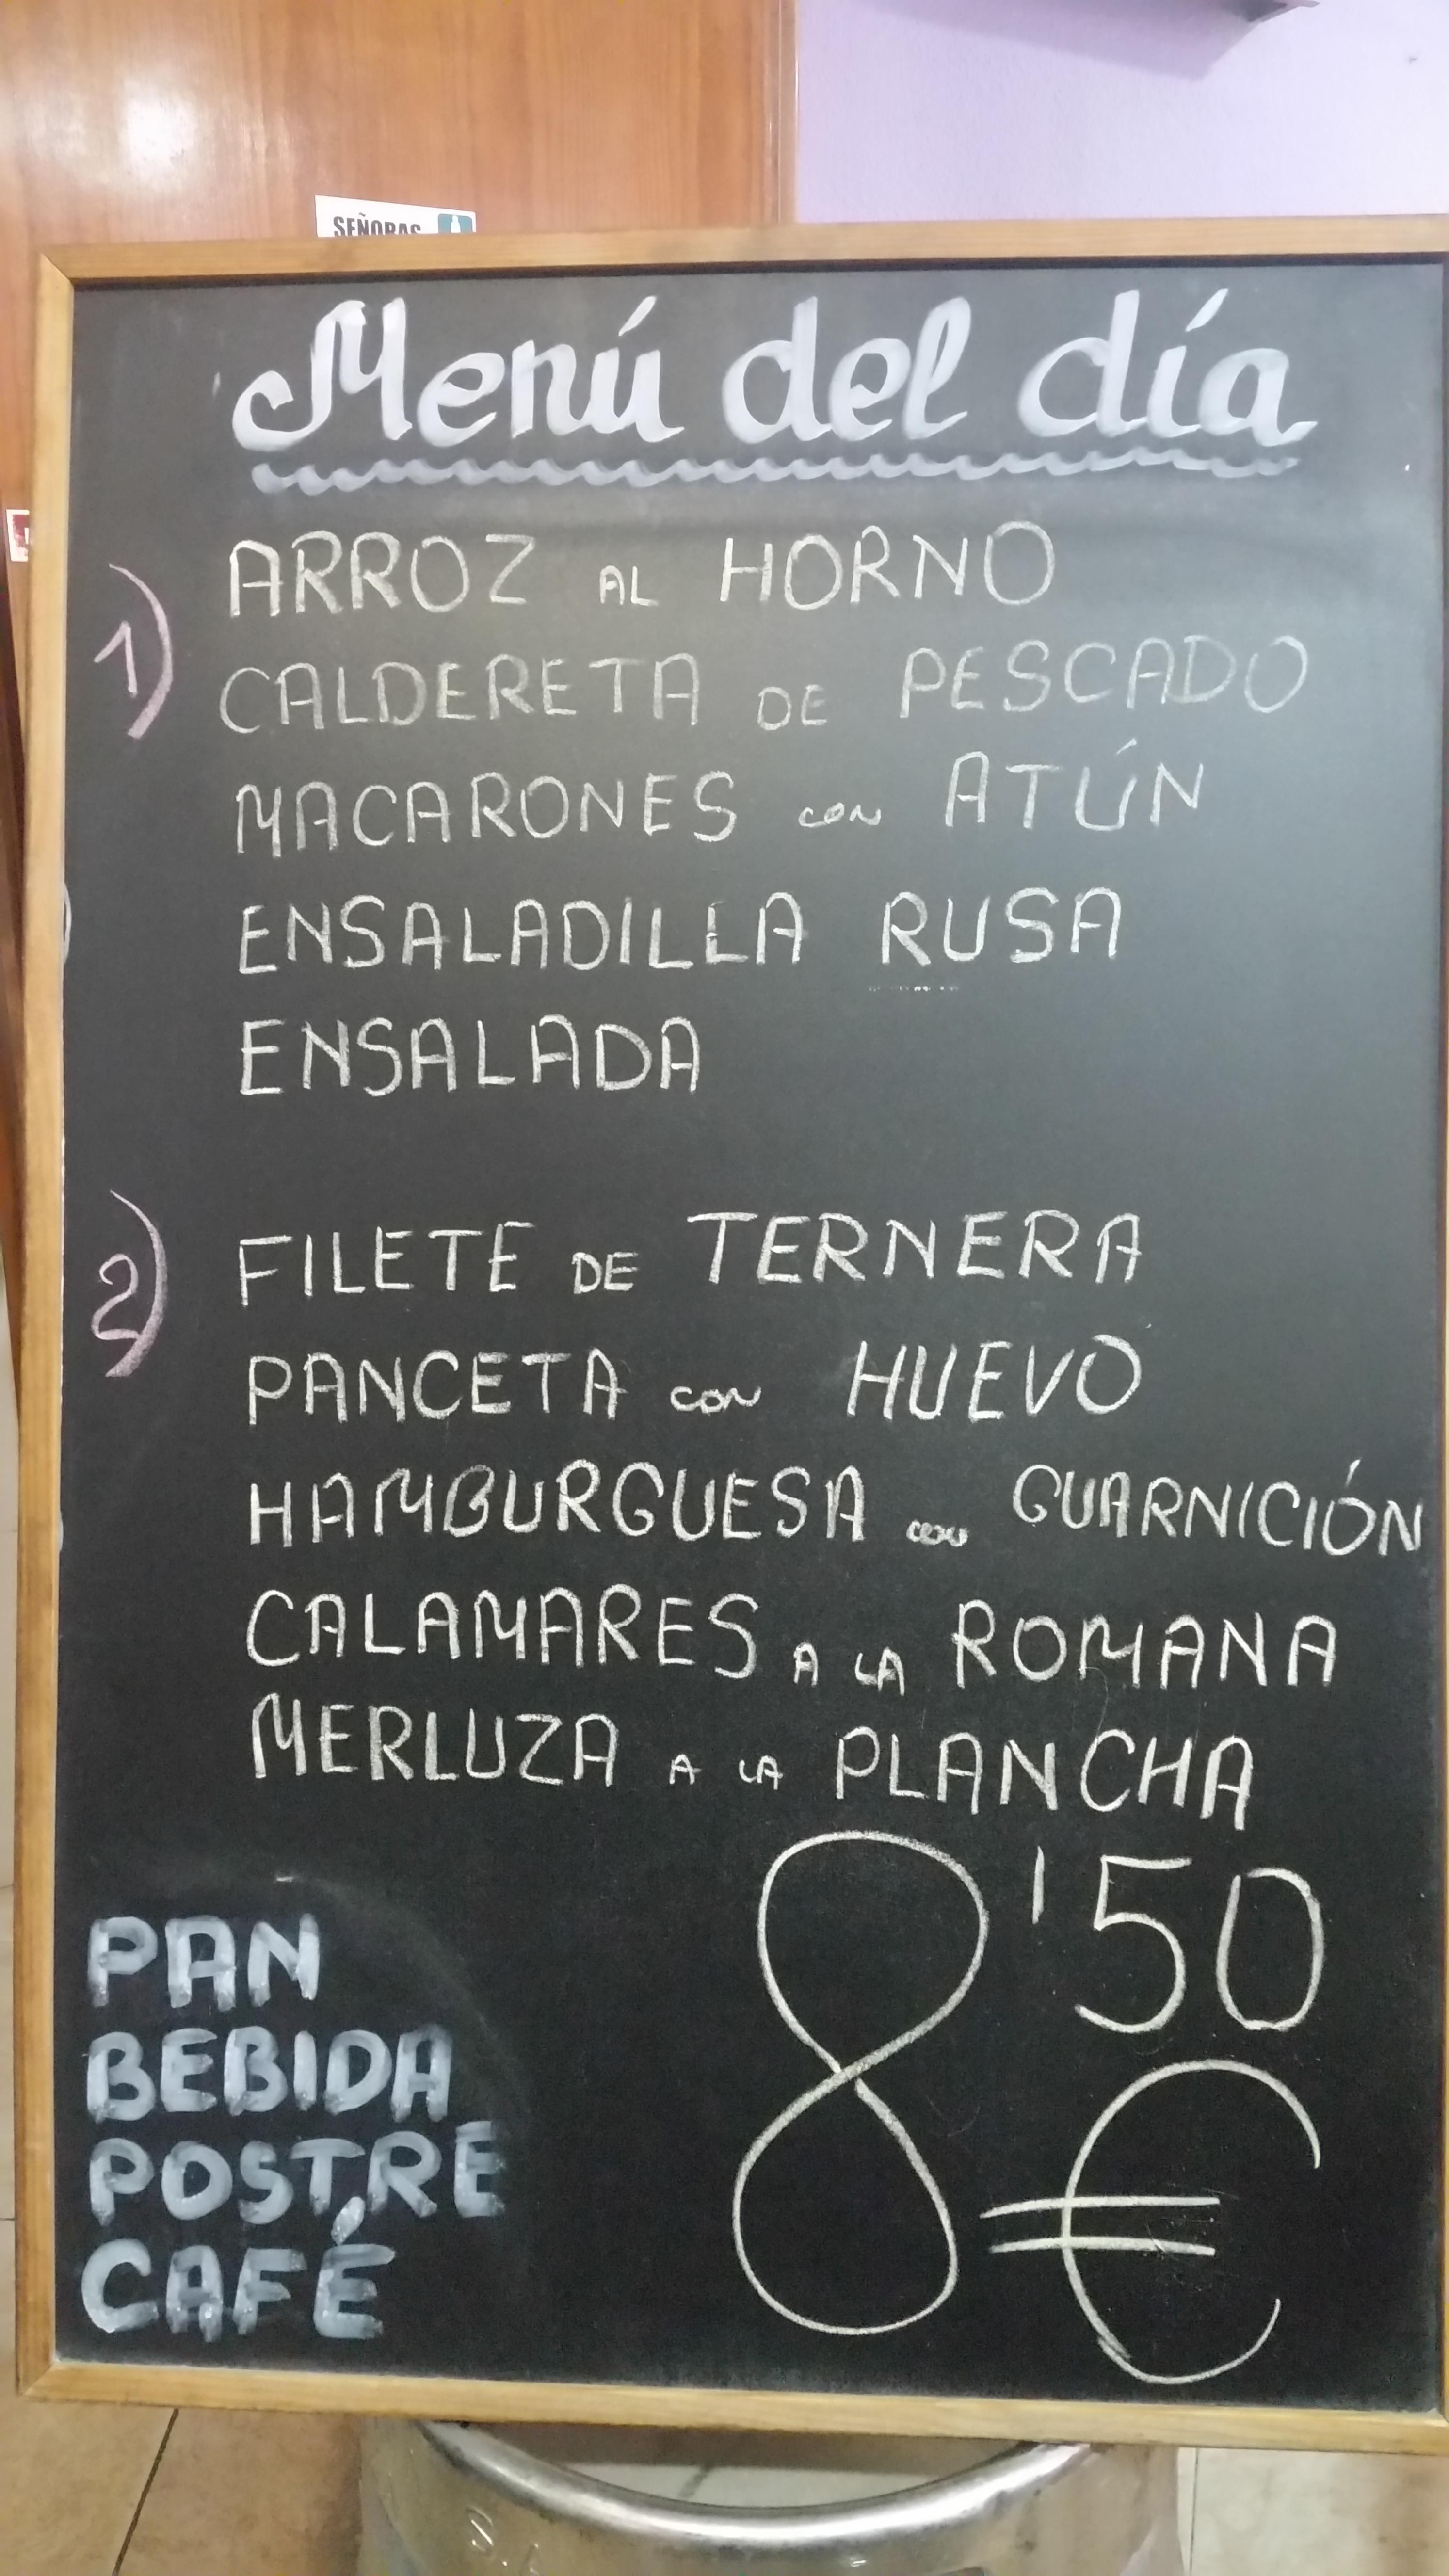 SEÑORAS
Menú del día
1)
ARROZ AL HORNO
CALDERETA DE PESCADO
MACARONES CON ATÚN
ENSALADILLA RUSA
ENSALADA
2)
FILETE DE TERNERA
PANCETA CON HUEVO
HAMBURGUESA CON GUARNICIÓN
CALAMARES A LA ROMANA
MERLUZA A LA PLANCHA
8'50
€
PAN
BEBIDA
POSTRE
CAFÉ